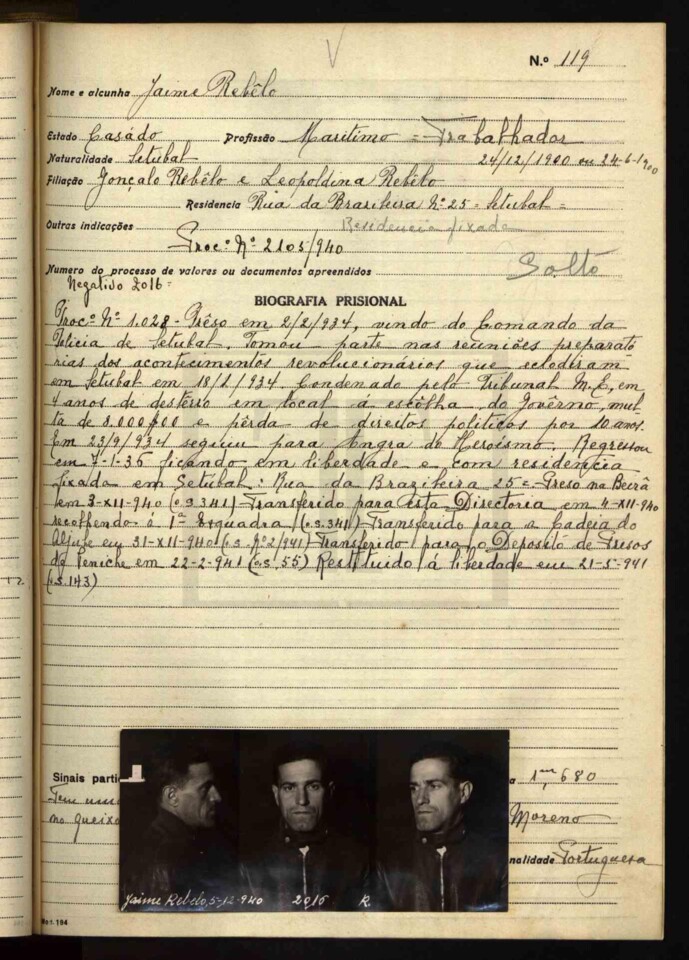 V
N.º 119
Nome e alcunha Jaime Rebêlo
Estado Casádo Profissão Maritimo = Trabalhador
Naturalidade Setubal 24/12/1900 ou 24-6-1900
Filiação Gonçalo Rebêlo e Leopoldina Rebêlo
Residencia Rua da Brasileira Nº 25 = Setubal =
Outras indicações Residencia fixada
Proc.º Nº 2105/940
Numero do processo de valores ou documentos apreendidos Solto
Negativo 2016 =
BIOGRAFIA PRISIONAL
Proc.º Nº 1.028 - Prêso em 2/2/934, vindo do Comando da
Policia de Setubal. Tomou parte nas reuniões preparató
rias dos acontecimentos revolucionários que eclodiram
em Setubal em 18/1/934. Condenado pelo Tribunal M.E, em
4 anos de desterro em local á escôlha do Govêrno, mul
ta de 8.000$00 e pêrda de direitos politicos por 10 anos.
Em 23/9/934 seguiu para Angra do Heroismo. Regressou
em 7-1-36 ficando em liberdade e com residencia
fixada em Setúbal: Rua da Brazileira 25 = Preso na Beirã
em 3-XII-940 (o.s. 341) Transferido para esta Directoria em 4-XII-940
recolhendo á 1ª Esquadra (o.s. 341) Transferido para a Cadeia do
Aljube em 31-XII-940 (o.s. Nº 2/941) Transferido para o Deposito de Presos
de Peniche em 22-2-941 (o.s. 55) Restituido á liberdade em 21-5-941
(o.s. 143)
Sinais partic
a 1m,680
Tem uma
no queixo
Moreno
nalidade Portuguesa
Jaime Rebelo, 5-12-940 2016 R.
194